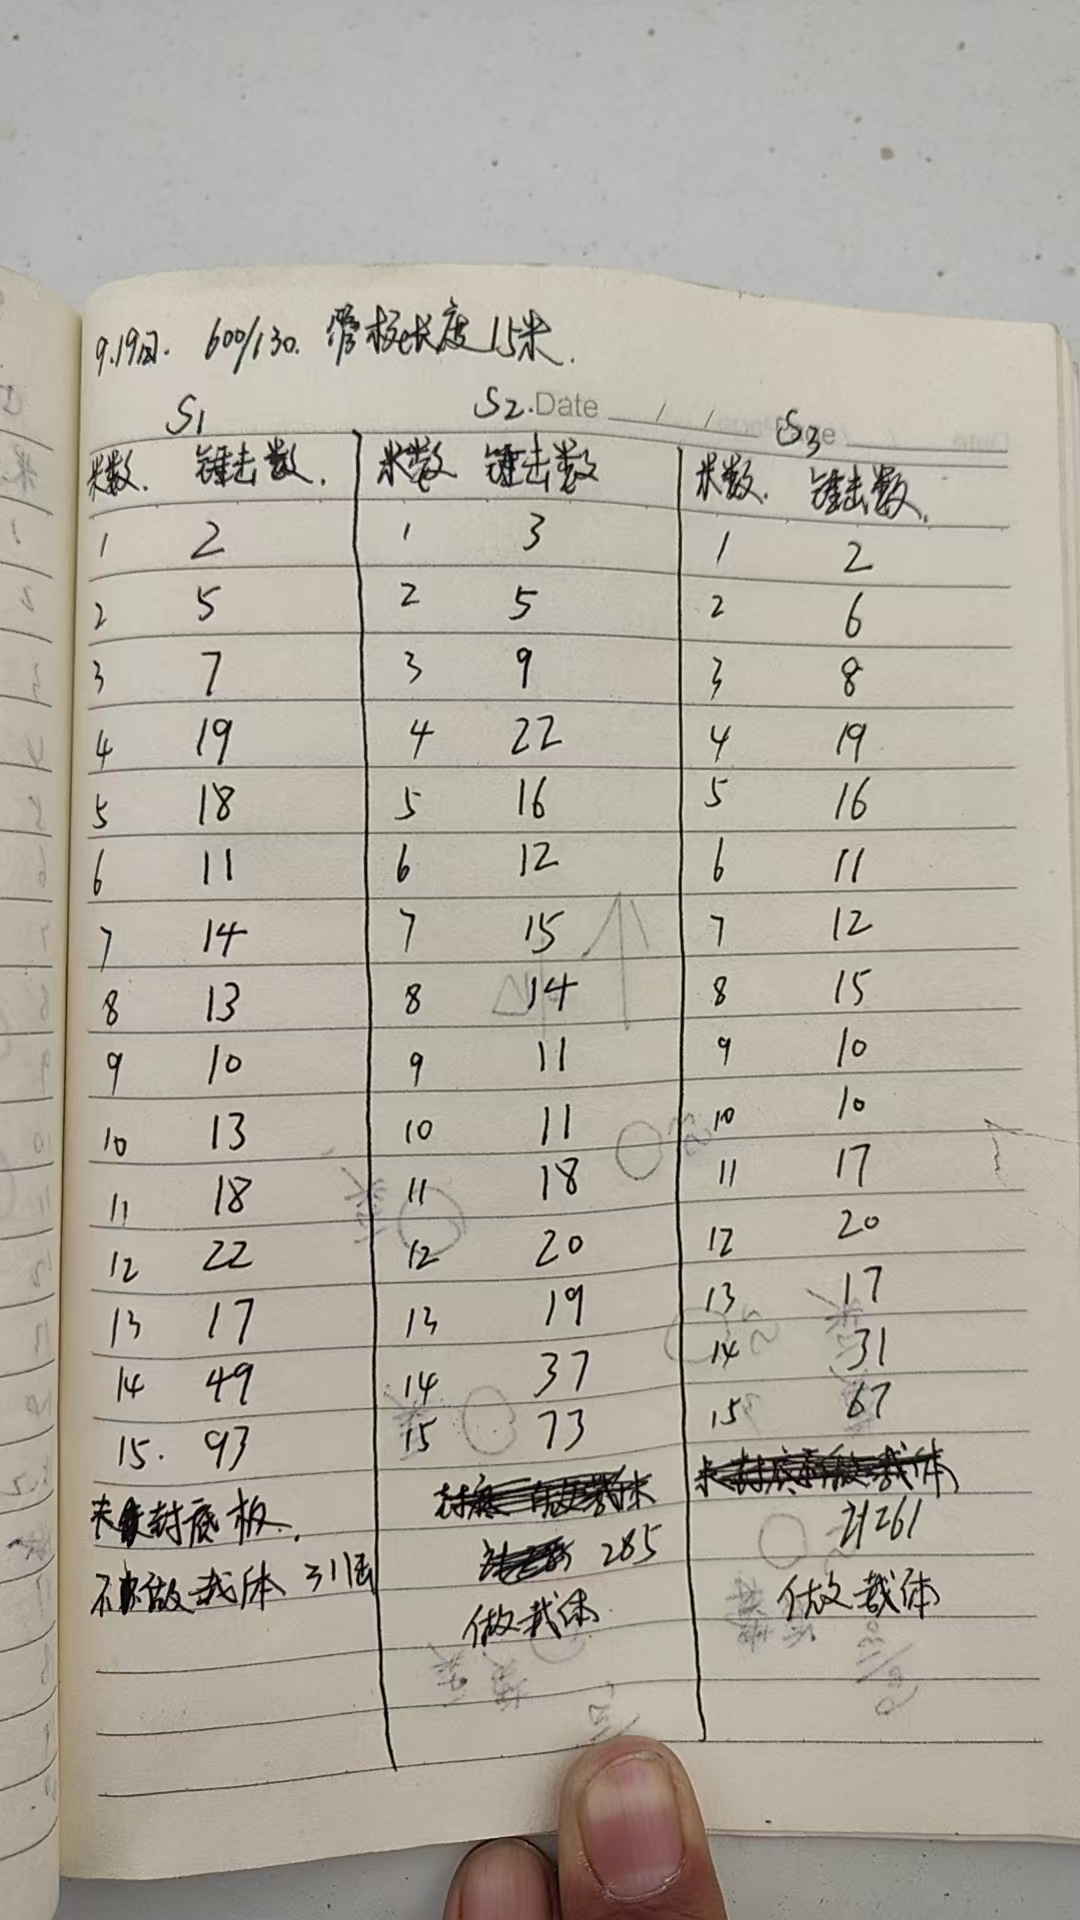 9.19日. 600/130. 管桩长度15米.
S1 S2. Date / / S3
米数. 锤击数. 米数 锤击数 米数. 锤击数.
1 2 1 3 1 2
2 5 2 5 2 6
3 7 3 9 3 8
4 19 4 22 4 19
5 18 5 16 5 16
6 11 6 12 6 11
7 14 7 15 7 12
8 13 8 14 8 15
9 10 9 11 9 10
10 13 10 11 10 10
11 18 11 18 11 17
12 22 12 20 12 20
13 17 13 19 13 17
14 49 14 37 14 31
15. 93 15 73 15 67
封底板. 261
不做载体 311击 285 做载体
做载体